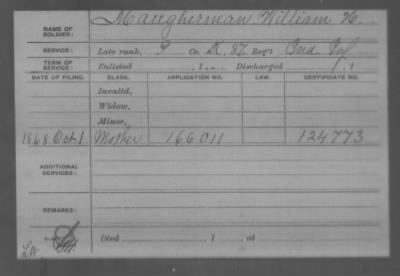 NAME OF SOLDIER: Maugherman, William H.
SERVICE: Late rank, P Co. K, 87 Reg't Ind Inf
TERM OF SERVICE: Enlisted , 1 . Discharged , 1 .
DATE OF FILING. CLASS. APPLICATION NO. LAW. CERTIFICATE NO.
Invalid,
Widow,
Minor,
1868 Oct 1 Mother 166011 124773
ADDITIONAL SERVICES:
REMARKS:
Died , 1 , at